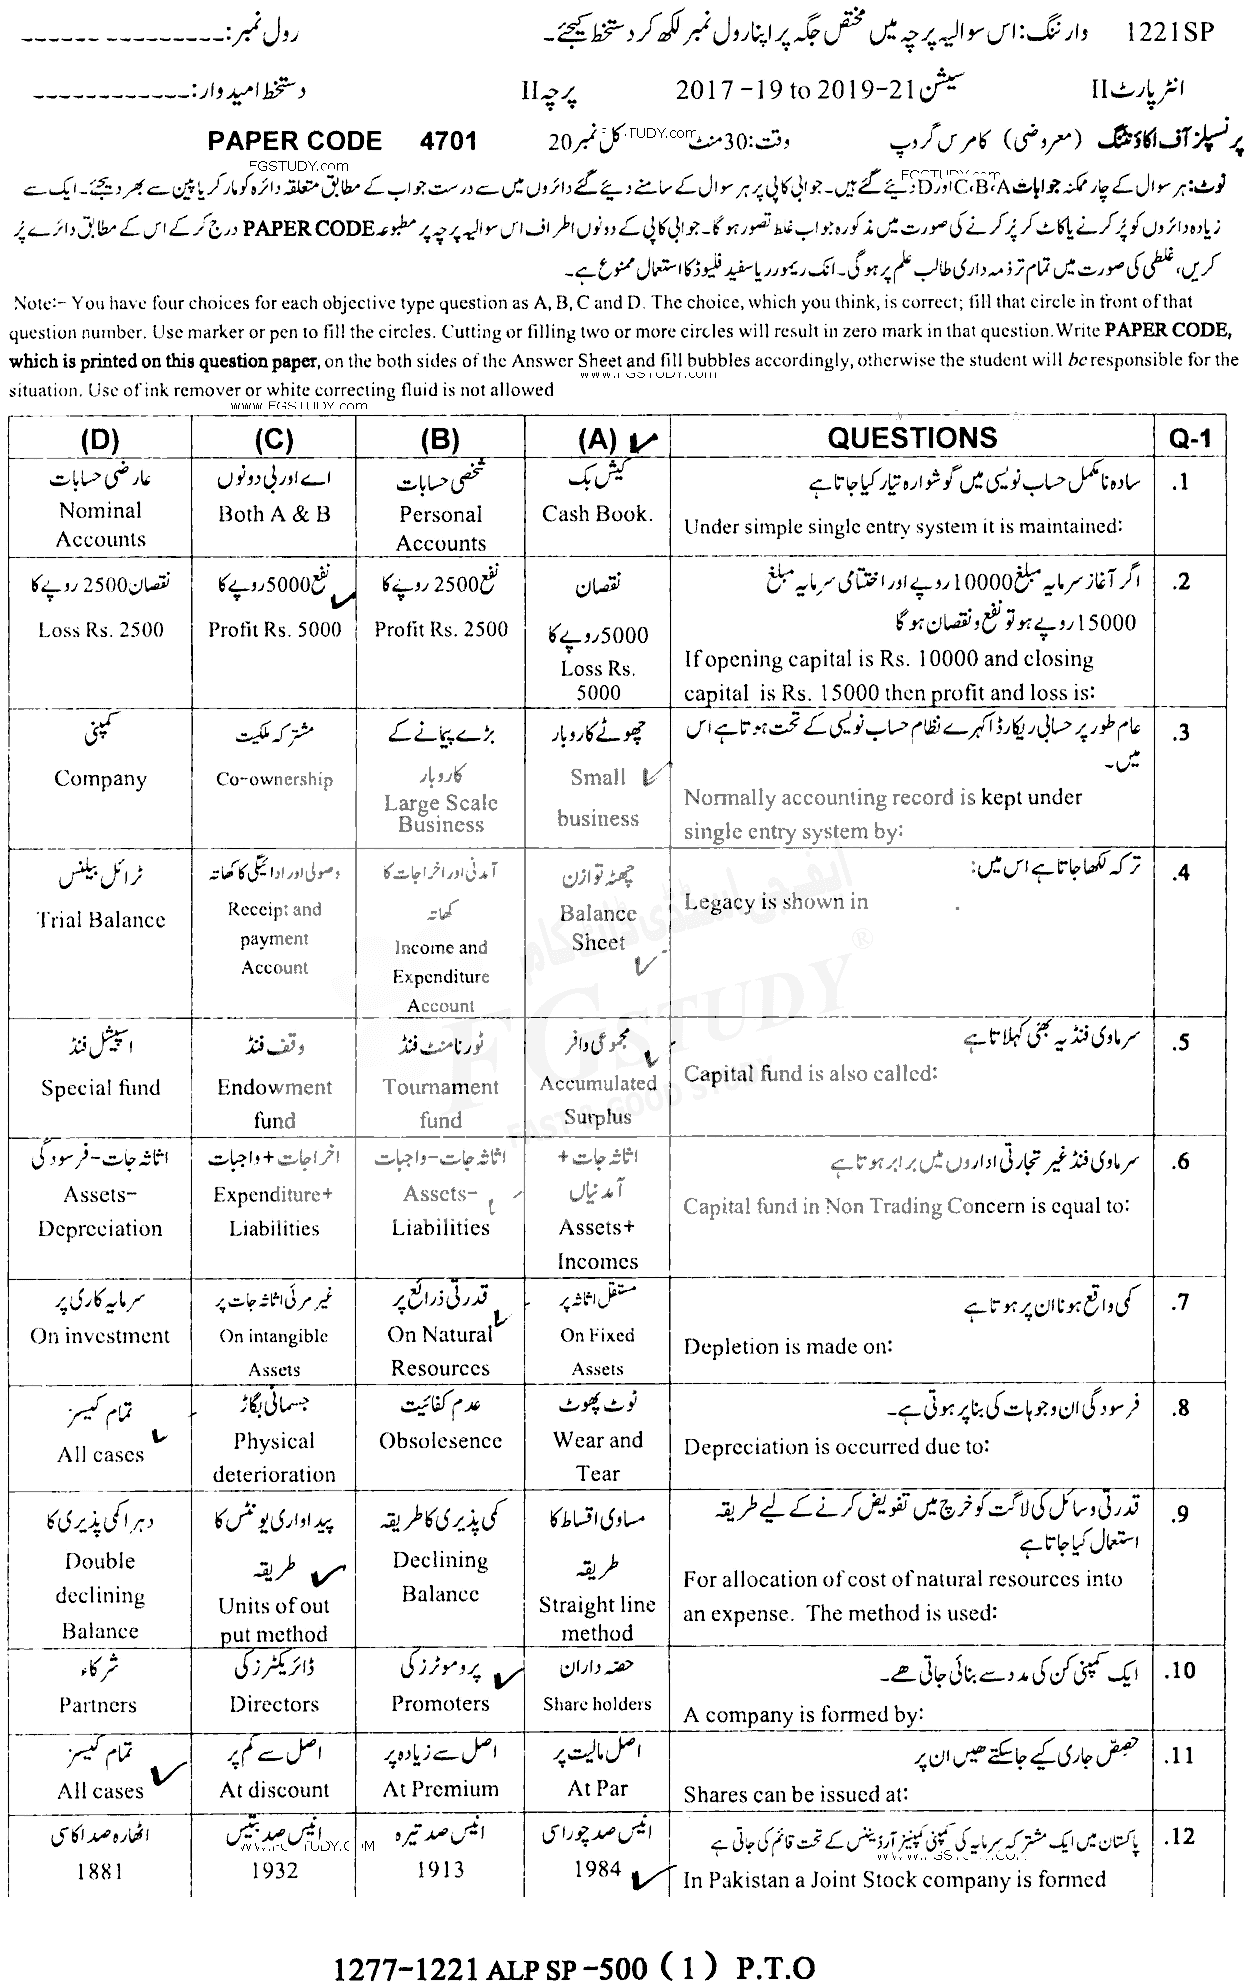 1221SP وارننگ: اس سوالیہ پرچہ میں مختص جگہ پر اپنا رول نمبر لکھ کر دستخط کیجئے۔ رول نمبر: --------- ------
انٹر پارٹ II سیشن 2017 -19 to 2019-21 پرچہ II دستخط امیدوار: ------------
پرنسپلز آف اکاؤنٹنگ (معروضی) کامرس گروپ وقت: 30 منٹ کل نمبر 20 PAPER CODE 4701
FGSTUDY.com
نوٹ: ہر سوال کے چار ممکنہ جوابات A، B، C اور D دیئے گئے ہیں۔ جوابی کاپی پر ہر سوال کے سامنے دیئے گئے دائروں میں سے درست جواب کے مطابق متعلقہ دائرہ کو مارکر یا پین سے بھر دیجئے۔ ایک سے
زیادہ دائروں کو پُر کرنے یا کاٹ کر پُر کرنے کی صورت میں مذکورہ جواب غلط تصور ہو گا۔ جوابی کاپی کے دونوں اطراف اس سوالیہ پرچہ پر مطبوعہ PAPER CODE درج کر کے اس کے مطابق دائرے پُر
کریں، غلطی کی صورت میں تمام تر ذمہ داری طالب علم پر ہو گی۔ انک ریموور یا سفید فلیوڈ کا استعمال ممنوع ہے۔
Note:- You have four choices for each objective type question as A, B, C and D. The choice, which you think, is correct; fill that circle in front of that
question number. Use marker or pen to fill the circles. Cutting or filling two or more circles will result in zero mark in that question. Write PAPER CODE,
which is printed on this question paper, on the both sides of the Answer Sheet and fill bubbles accordingly, otherwise the student will be responsible for the
situation. Use of ink remover or white correcting fluid is not allowed
www.FGSTUDY.com
(D) (C) (B) (A) QUESTIONS Q-1
.1 سادہ نامکمل حساب نویسی میں گوشوارہ تیار کیا جاتا ہے
Under simple single entry system it is maintained:
کیش بک
Cash Book.
شخصی حسابات
Personal
Accounts
اے اور بی دونوں
Both A & B
عارضی حسابات
Nominal
Accounts
.2 اگر آغاز سرمایہ مبلغ 10000 روپے اور اختتامی سرمایہ مبلغ
15000 روپے ہو تو نفع و نقصان ہو گا
If opening capital is Rs. 10000 and closing
capital is Rs. 15000 then profit and loss is:
نقصان
5000 روپے کا
Loss Rs.
5000
نفع 2500 روپے کا
Profit Rs. 2500
نفع 5000 روپے کا
Profit Rs. 5000
نقصان 2500 روپے کا
Loss Rs. 2500
.3 عام طور پر حسابی ریکارڈ اکہرے نظام حساب نویسی کے تحت ہوتا ہے اس
میں۔
Normally accounting record is kept under
single entry system by:
چھوٹے کاروبار
Small
business
بڑے پیمانے کے
کاروبار
Large Scale
Business
مشترکہ ملکیت
Co-ownership
کمپنی
Company
.4 ترکہ لکھا جاتا ہے اس میں:
Legacy is shown in
چھٹہ توازن
Balance
Sheet
آمدنی اور اخراجات کا
کھاتہ
Income and
Expenditure
Account
وصولی اور ادائیگی کا کھاتہ
Receipt and
payment
Account
ٹرائل بیلنس
Trial Balance
.5 سرماوی فنڈ یہ بھی کہلاتا ہے
Capital fund is also called:
مجموعی وافر
Accumulated
Surplus
ٹورنامنٹ فنڈ
Tournament
fund
وقف فنڈ
Endowment
fund
اسپیشل فنڈ
Special fund
.6 سرماوی فنڈ غیر تجارتی اداروں میں برابر ہوتا ہے
Capital fund in Non Trading Concern is equal to:
اثاثہ جات +
آمدنیاں
Assets+
Incomes
اثاثہ جات - واجبات
Assets-
Liabilities
اخراجات + واجبات
Expenditure+
Liabilities
اثاثہ جات - فرسودگی
Assets-
Depreciation
.7 کمی واقع ہونا ان پر ہوتا ہے
Depletion is made on:
مستقل اثاثہ پر
On Fixed
Assets
قدرتی ذرائع پر
On Natural
Resources
غیر مرئی اثاثہ جات پر
On intangible
Assets
سرمایہ کاری پر
On investment
.8 فرسودگی ان وجوہات کی بنا پر ہوتی ہے۔
Depreciation is occurred due to:
ٹوٹ پھوٹ
Wear and
Tear
عدم کفائیت
Obsolesence
جسمانی بگاڑ
Physical
deterioration
تمام کیسز
All cases
.9 قدرتی وسائل کی لاگت کو خرچ میں تفویض کرنے کے لیے طریقہ
استعمال کیا جاتا ہے
For allocation of cost of natural resources into
an expense. The method is used:
مساوی اقساط کا
طریقہ
Straight line
method
کمی پذیری کا طریقہ
Declining
Balance
پیداواری یونٹس کا
طریقہ
Units of out
put method
دہرا کمی پذیری کا
Double
declining
Balance
.10 ایک کمپنی کن کی مدد سے بنائی جاتی ھے۔
A company is formed by:
حصہ داران
Share holders
پروموٹرز کی
Promoters
ڈائریکٹرز کی
Directors
شرکاء
Partners
.11 حصص جاری کیے جا سکتے ھیں ان پر
Shares can be issued at:
اصل مالیت پر
At Par
اصل سے زیادہ پر
At Premium
اصل سے کم پر
At discount
تمام کیسز
All cases
.12 پاکستان میں ایک مشترکہ سرمایہ کی کمپنی کمپنیز آرڈیننس کے تحت قائم کی جاتی ہے
In Pakistan a Joint Stock company is formed
انیس صد چوراسی
1984
انیس صد تیرہ
1913
انیس صد بتیس
1932
اٹھارہ صد اکاسی
1881
1277-1221 ALP SP -500 ( 1 ) P.T.O